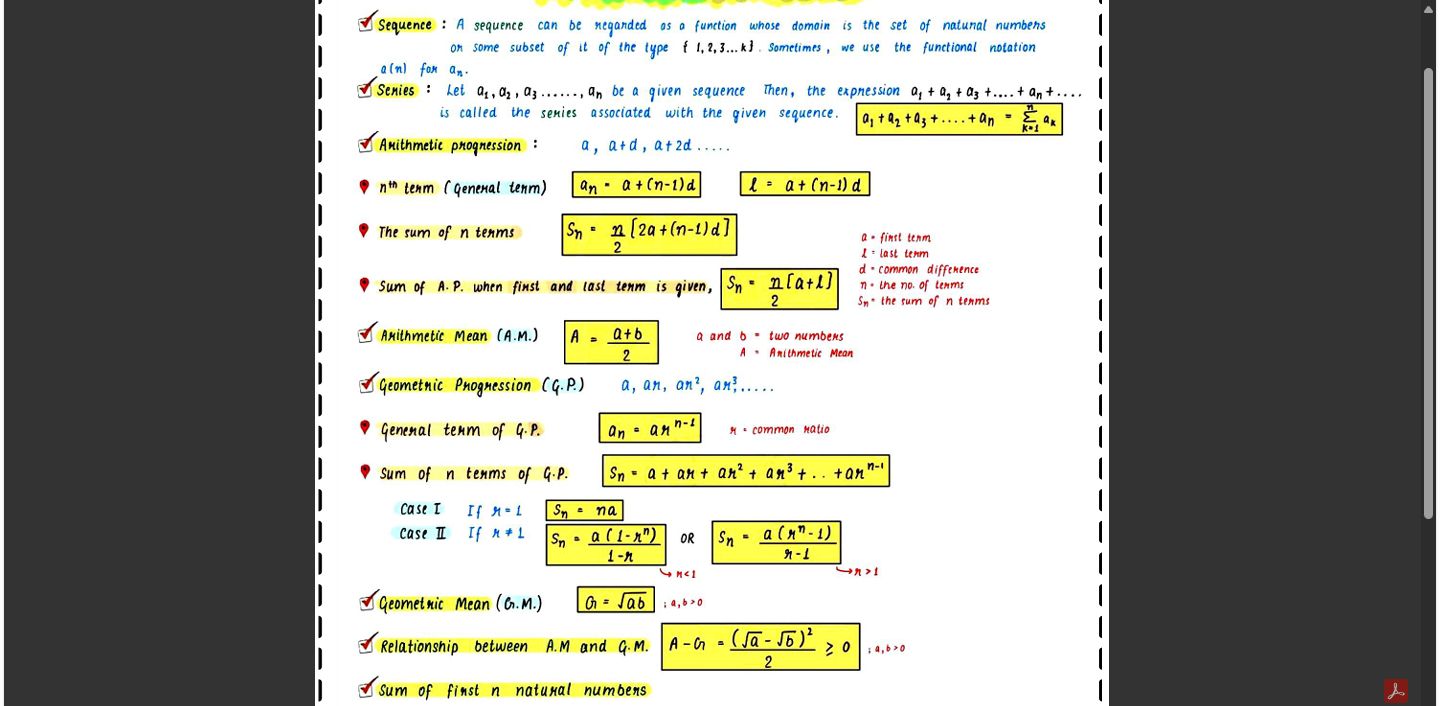 Sequence : A sequence can be regarded as a function whose domain is the set of natural numbers
or some subset of it of the type { 1, 2, 3...k} . Sometimes , we use the functional notation
a(n) for aₙ.
Series : Let a₁, a₂ , a₃ ......, aₙ be a given sequence Then, the expression a₁ + a₂ + a₃ +....+ aₙ +....
is called the series associated with the given sequence. a₁ + a₂ + a₃ + .... + aₙ = ⁿΣₖ₌₁ aₖ
Arithmetic progression : a , a+d , a+2d .....
nᵗʰ term (General term) aₙ = a + (n-1)d l = a + (n-1) d
The sum of n terms Sₙ = n/2 [2a + (n-1)d]
a = first term
l = last term
d = common difference
n = the no. of terms
Sₙ = the sum of n terms
Sum of A.P. when first and last term is given, Sₙ = n/2 [a+l]
Arithmetic Mean (A.M.) A = a+b/2
a and b = two numbers
A = Arithmetic Mean
Geometric Progression (G.P.) a, ar, ar², ar³,.....
General term of G.P. aₙ = arⁿ⁻¹ r = common ratio
Sum of n terms of G.P. Sₙ = a + ar + ar² + ar³ + .. + arⁿ⁻¹
Case I If r = 1 Sₙ = na
Case II If r ≠ 1 Sₙ = a(1-rⁿ)/1-r OR Sₙ = a(rⁿ-1)/r-1
r<1 r>1
Geometric Mean (G.M.) G = √ab ; a,b>0
Relationship between A.M and G.M. A-G = (√a - √b)²/2 ≥ 0 ; a,b>0
Sum of first n natural numbers